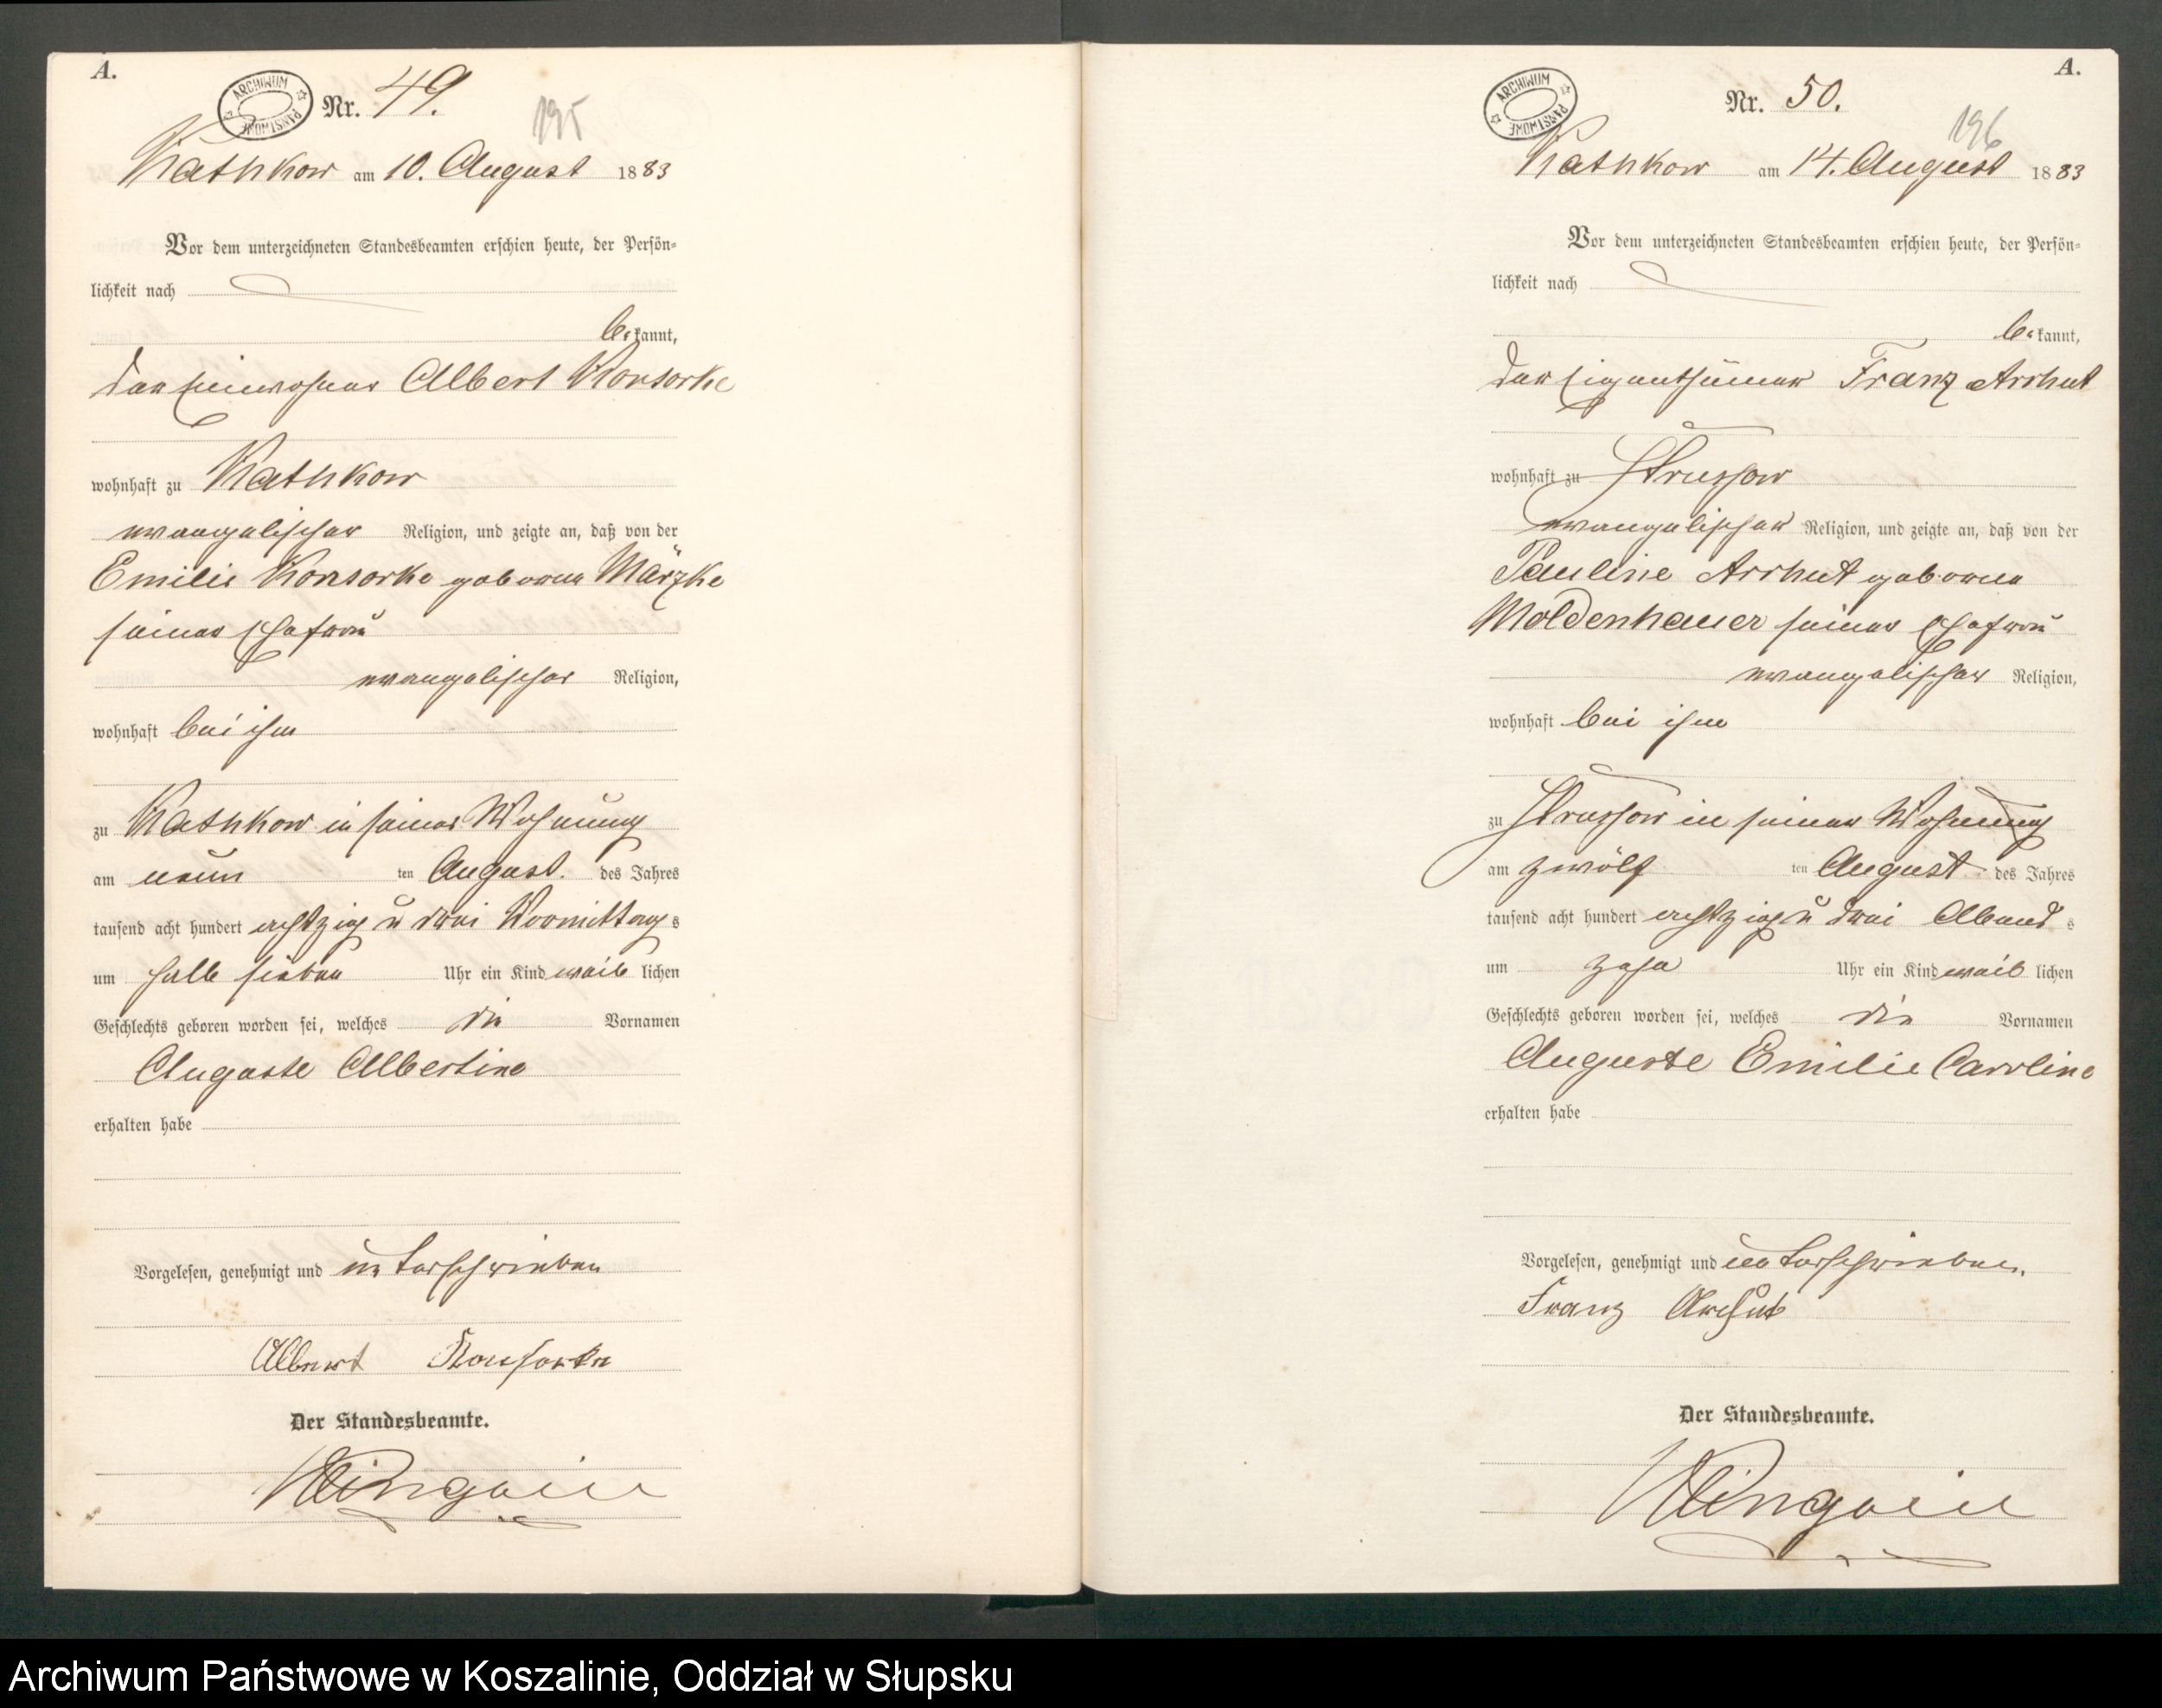 A.
ARCHIWUM PAŃSTWOWE
Nr. 49.
195
Kathkow am 10. August 1883
Vor dem unterzeichneten Standesbeamten erschien heute, der Persön-
lichkeit nach
be kannt,
der Einwohner Albert Konsorke
wohnhaft zu Kathkow
evangelischer Religion, und zeigte an, daß von der
Emilie Konsorke geborene Märzke
seiner Ehefrau
evangelischer Religion,
wohnhaft bei ihm
zu Kathkow in seiner Wohnung
am neun ten August des Jahres
tausend acht hundert achtzig u drei Vormittags
um halb sieben Uhr ein Kind weib lichen
Geschlechts geboren worden sei, welches die Vornamen
Auguste Albertine
erhalten habe
Vorgelesen, genehmigt und unterschrieben
Albert Konsorke
Der Standesbeamte.
A.
ARCHIWUM PAŃSTWOWE
Nr. 50.
196
Kathkow am 14. August 1883
Vor dem unterzeichneten Standesbeamten erschien heute, der Persön-
lichkeit nach
be kannt,
der Eigenthümer Franz Arrhut
wohnhaft zu Strussow
evangelischer Religion, und zeigte an, daß von der
Pauline Arrhut geborene
Moldenhauer seiner Ehefrau
evangelischer Religion,
wohnhaft bei ihm
zu Strussow in seiner Wohnung
am zwölf ten August des Jahres
tausend acht hundert achtzig u drei Abends
um zehn Uhr ein Kind weib lichen
Geschlechts geboren worden sei, welches die Vornamen
Auguste Emilie Caroline
erhalten habe
Vorgelesen, genehmigt und unterschrieben.
Franz Arrhut
Der Standesbeamte.
Archiwum Państwowe w Koszalinie, Oddział w Słupsku